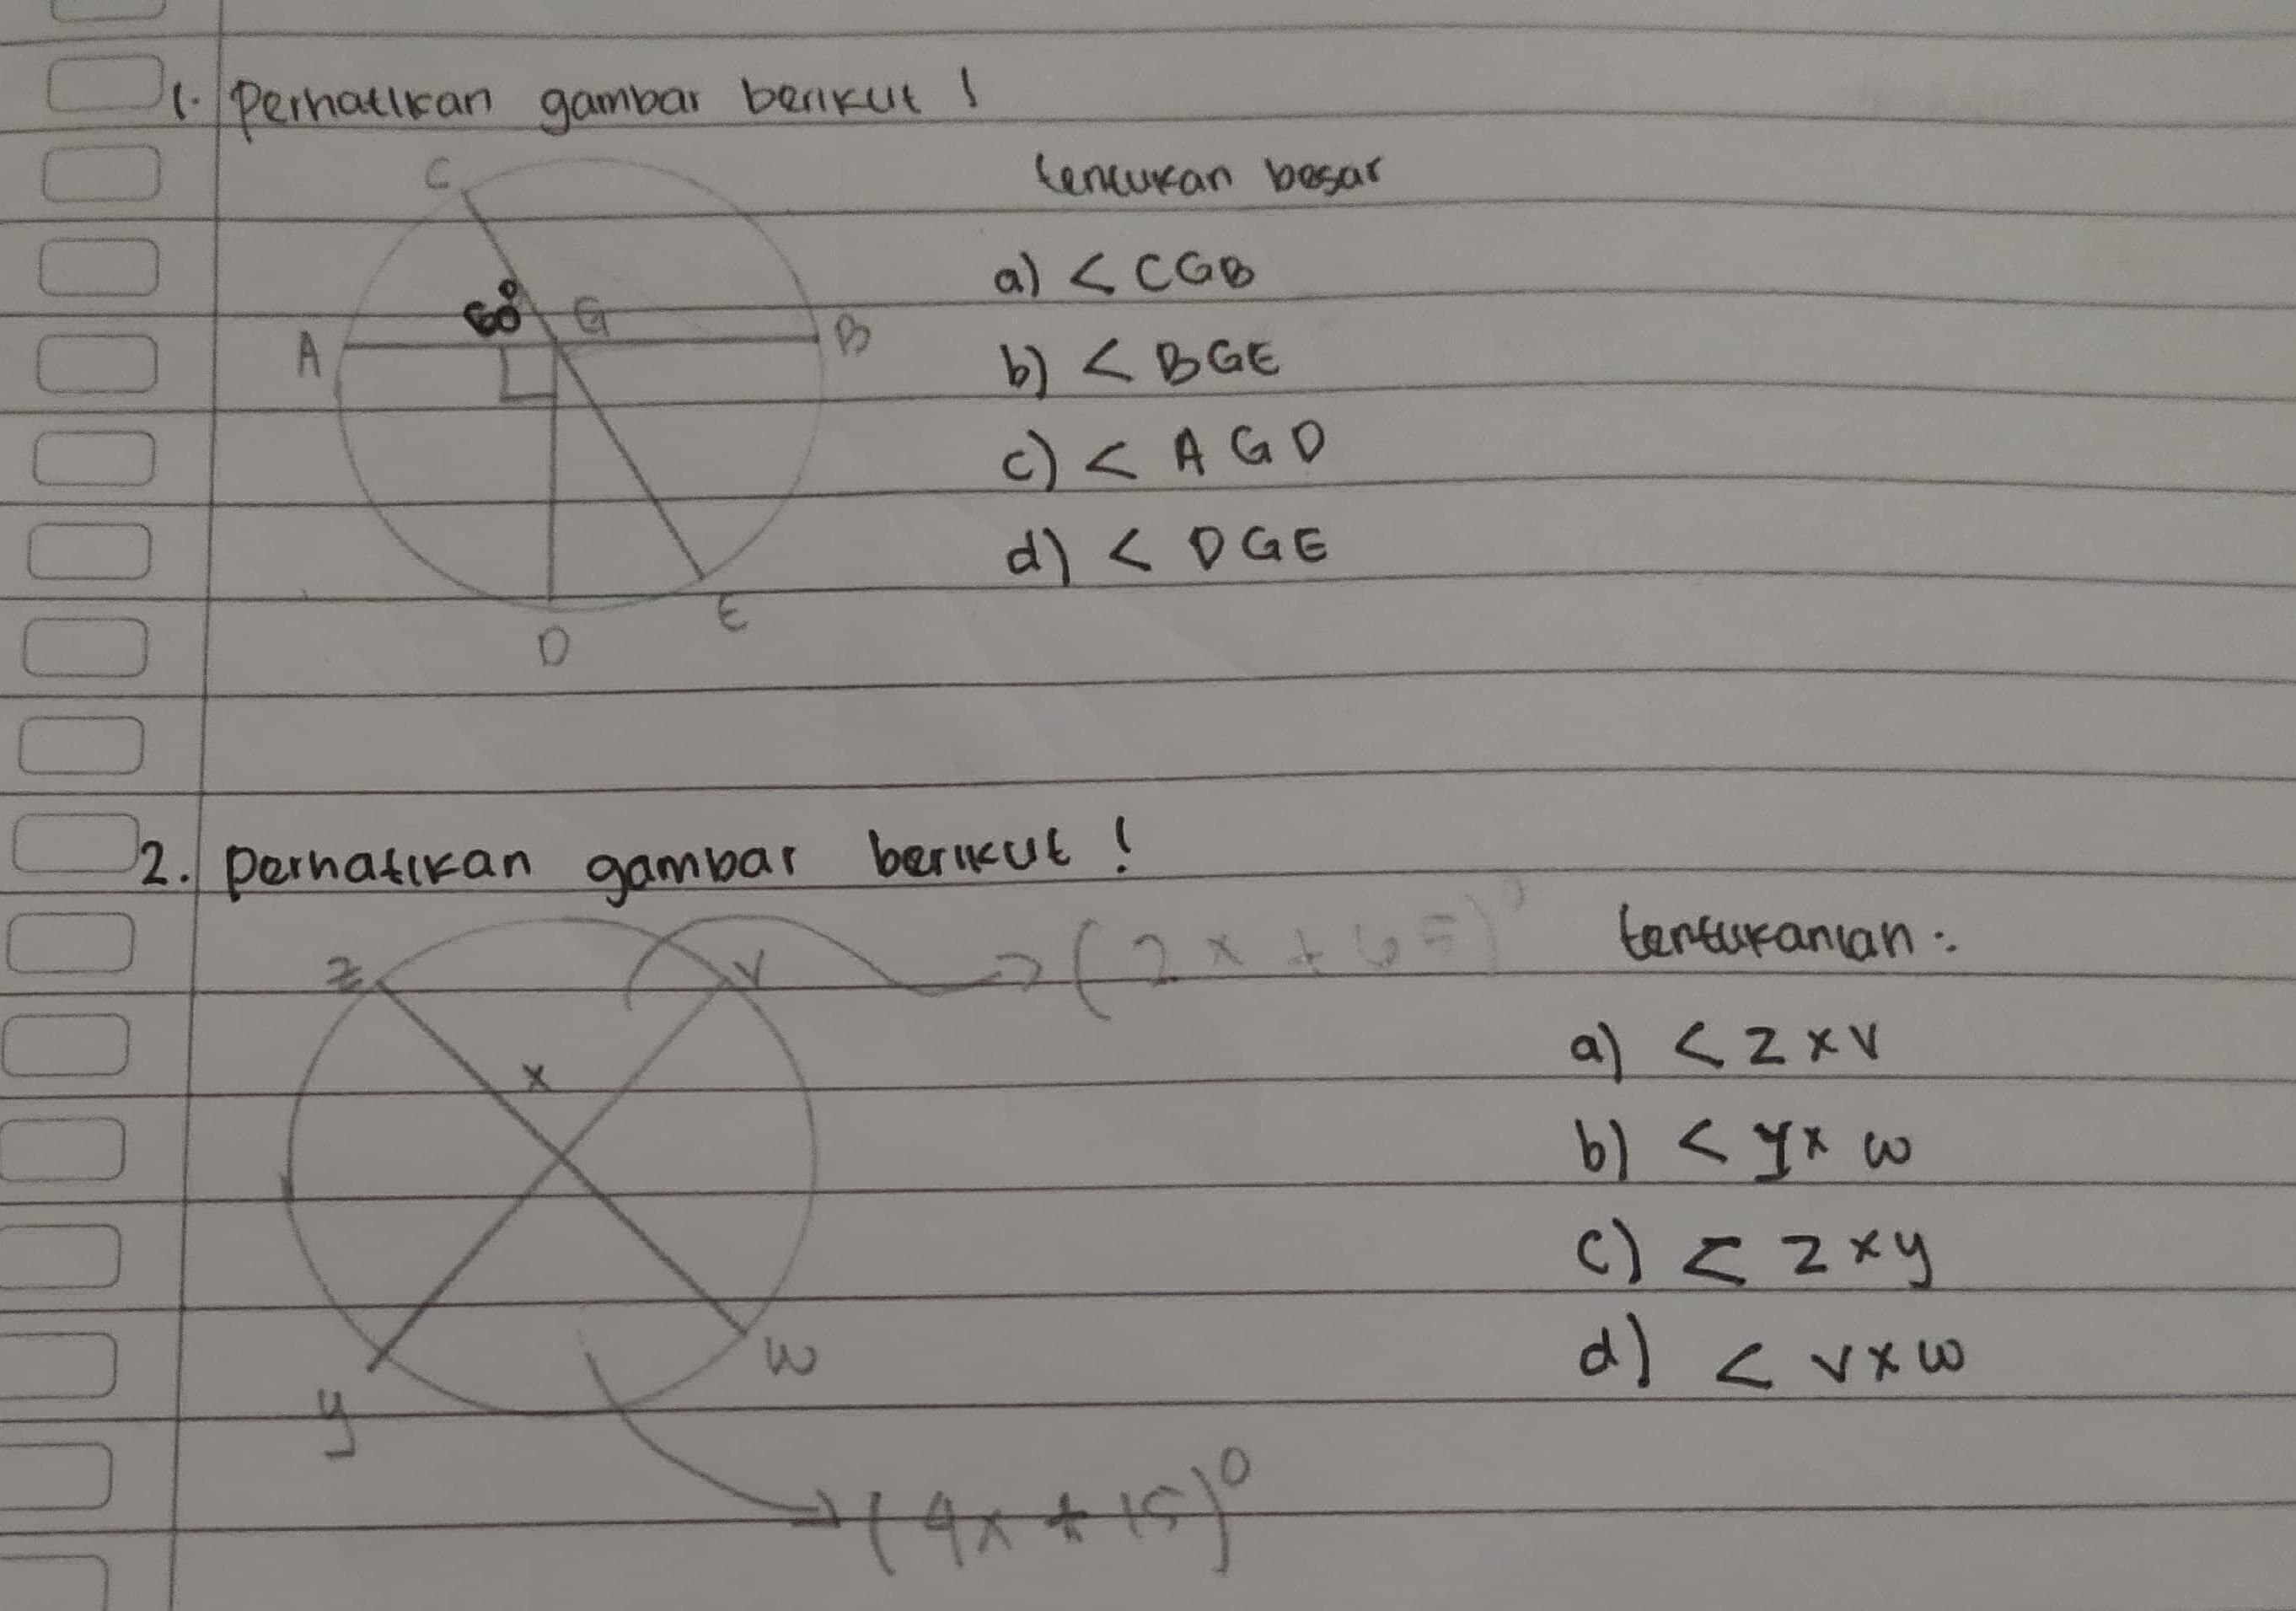 1. Perhatikan gambar berikut !
tentukan besar
C
60°
G
A
B
D
E
a) < CGB
b) < BGE
c) < AGD
d) < DGE
2. perhatikan gambar berikut !
Z
V
(2x + 65)°
x
y
w
(4x + 15)°
tentukanlah :
a) < z x v
b) < y x w
c) < z x y
d) < v x w